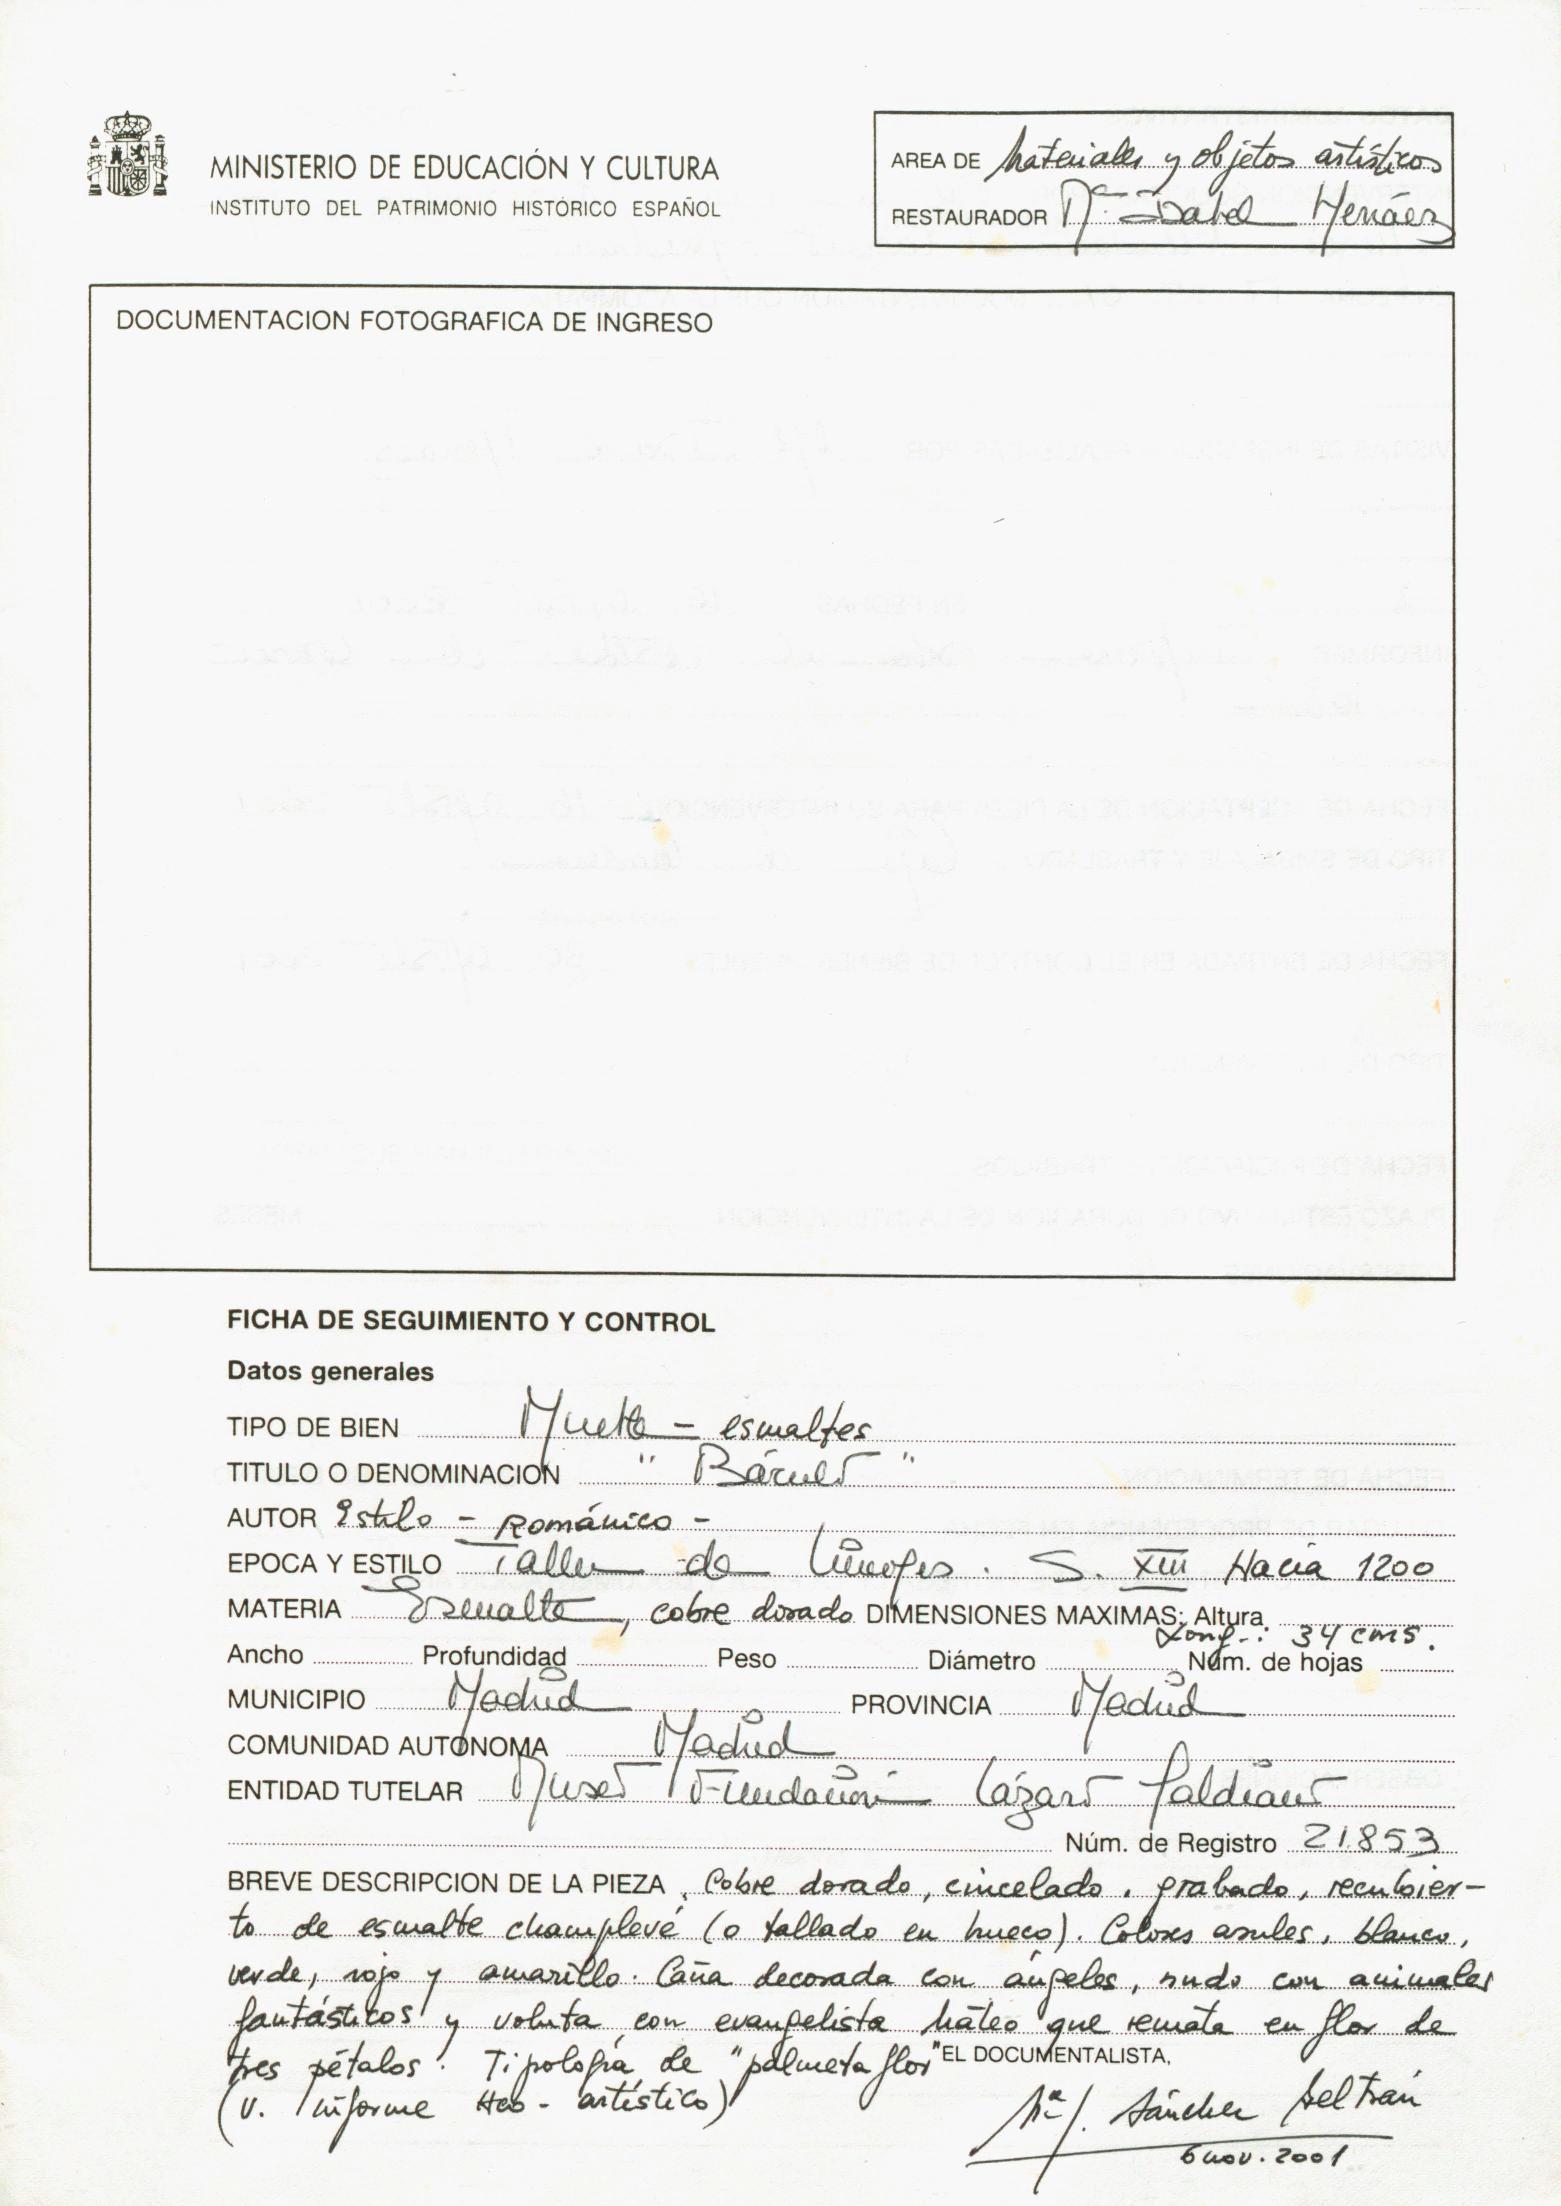 MINISTERIO DE EDUCACIÓN Y CULTURA
INSTITUTO DEL PATRIMONIO HISTÓRICO ESPAÑOL
AREA DE Materiales y objetos artísticos
RESTAURADOR Mª Isabel Herráez
DOCUMENTACION FOTOGRAFICA DE INGRESO
FICHA DE SEGUIMIENTO Y CONTROL
Datos generales
TIPO DE BIEN Mueble - esmaltes
TITULO O DENOMINACION " Báculo "
AUTOR Estilo - Románico -
EPOCA Y ESTILO Taller de Limoges. S. XIII Hacia 1200
MATERIA Esmalte, cobre dorado DIMENSIONES MAXIMAS: Altura
Long.: 34 cms.
Ancho Profundidad Peso Diámetro Núm. de hojas
MUNICIPIO Madrid PROVINCIA Madrid
COMUNIDAD AUTÓNOMA Madrid
ENTIDAD TUTELAR Museo Fundación Lázaro Galdiano
Núm. de Registro 21.853
BREVE DESCRIPCION DE LA PIEZA, Cobre dorado, cincelado, grabado, recubier-
to de esmalte champlevé (o tallado en hueco). Colores azules, blanco,
verde, rojo y amarillo. Caña decorada con ángeles, nudo con animales
fantásticos y voluta con evangelista Mateo que remata en flor de
tres pétalos. Tipología de "palmeta flor" EL DOCUMENTALISTA,
(V. informe Hco - artístico)
Mª J. Sánchez Beltrán
6 nov. 2001